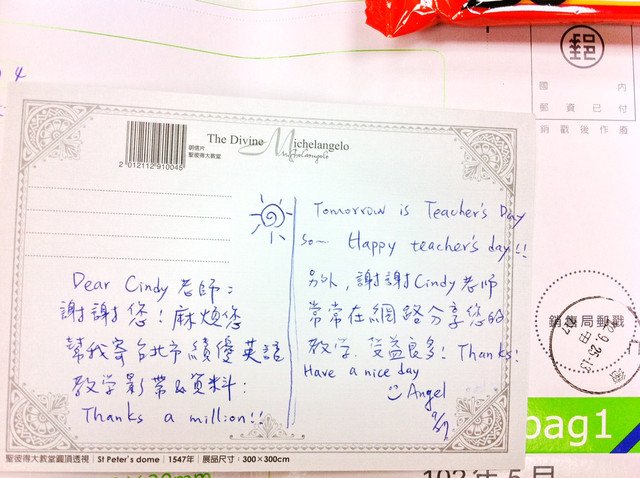 郵
國 內
郵資已付
銷戳後作廢
明信片
聖彼得大教堂
The Divine Michelangelo
Michelangelo
2 012112 910045
Dear Cindy 老師:
謝謝您!麻煩您
幫我寄台北市績優英語
教学影帶&資料:
Thanks a million!!
Tomorrow is Teacher's Day
so~ Happy teacher's day!!
另外,謝謝Cindy老师
常常在網路分享您的
教学,受益良多! Thanks!
Have a nice day
Angel
9/27
聖彼得大教堂圓頂透視 | St Peter's dome | 1547年 | 展品尺寸:300×300cm
銷售局郵戳
bag1
102年5月